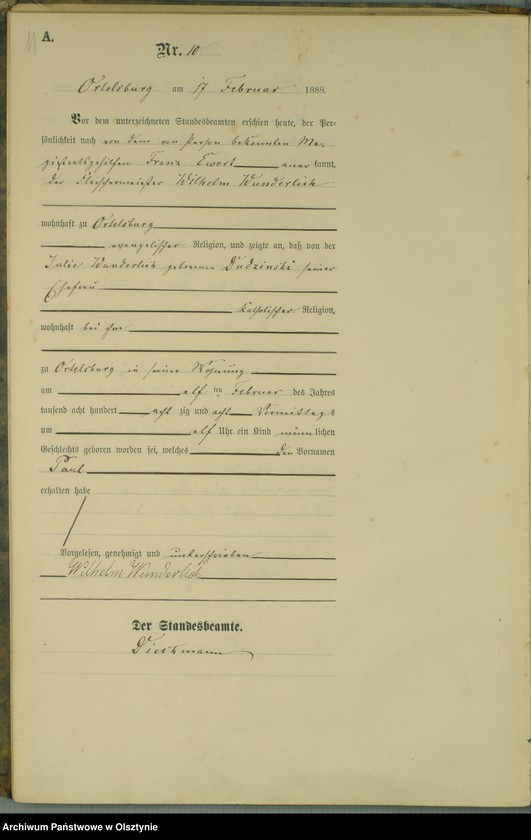 11
A.
Nr. 10
Ortelsburg am 17 Februar 1888.
Vor dem unterzeichneten Standesbeamten erschien heute, der Per-
sönlichkeit nach von dem von Person bekannten Ma-
gistratsgehilfen Franz Ewert anerkannt,
der Fleischermeister Wilhelm Wunderlich
wohnhaft zu Ortelsburg
evangelischer Religion, und zeigte an, daß von der
Julie Wunderlich geborenen Dudzinski seiner
Ehefrau
katholischer Religion,
wohnhaft bei ihm
zu Ortelsburg in seiner Wohnung
am elf ten Februar des Jahres
tausend acht hundert acht zig und acht Vormittags
um elf Uhr ein Kind männlichen
Geschlechts geboren worden sei, welches den Vornamen
Paul
erhalten habe
Vorgelesen, genehmigt und unterschrieben
Wilhelm Wunderlich
Der Standesbeamte.
Dieckmann
Archiwum Państwowe w Olsztynie